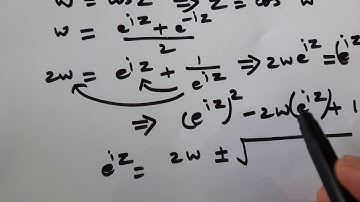 w = cos z ⇒ z = cos w
w = (e^{iz} + e^{-iz})/2
2w = e^{iz} + 1/e^{iz} ⇒ 2we^{iz} = (e^{iz}
⇒ (e^{iz})^2 - 2w(e^{iz}) + 1
e^{iz} = 2w ± √